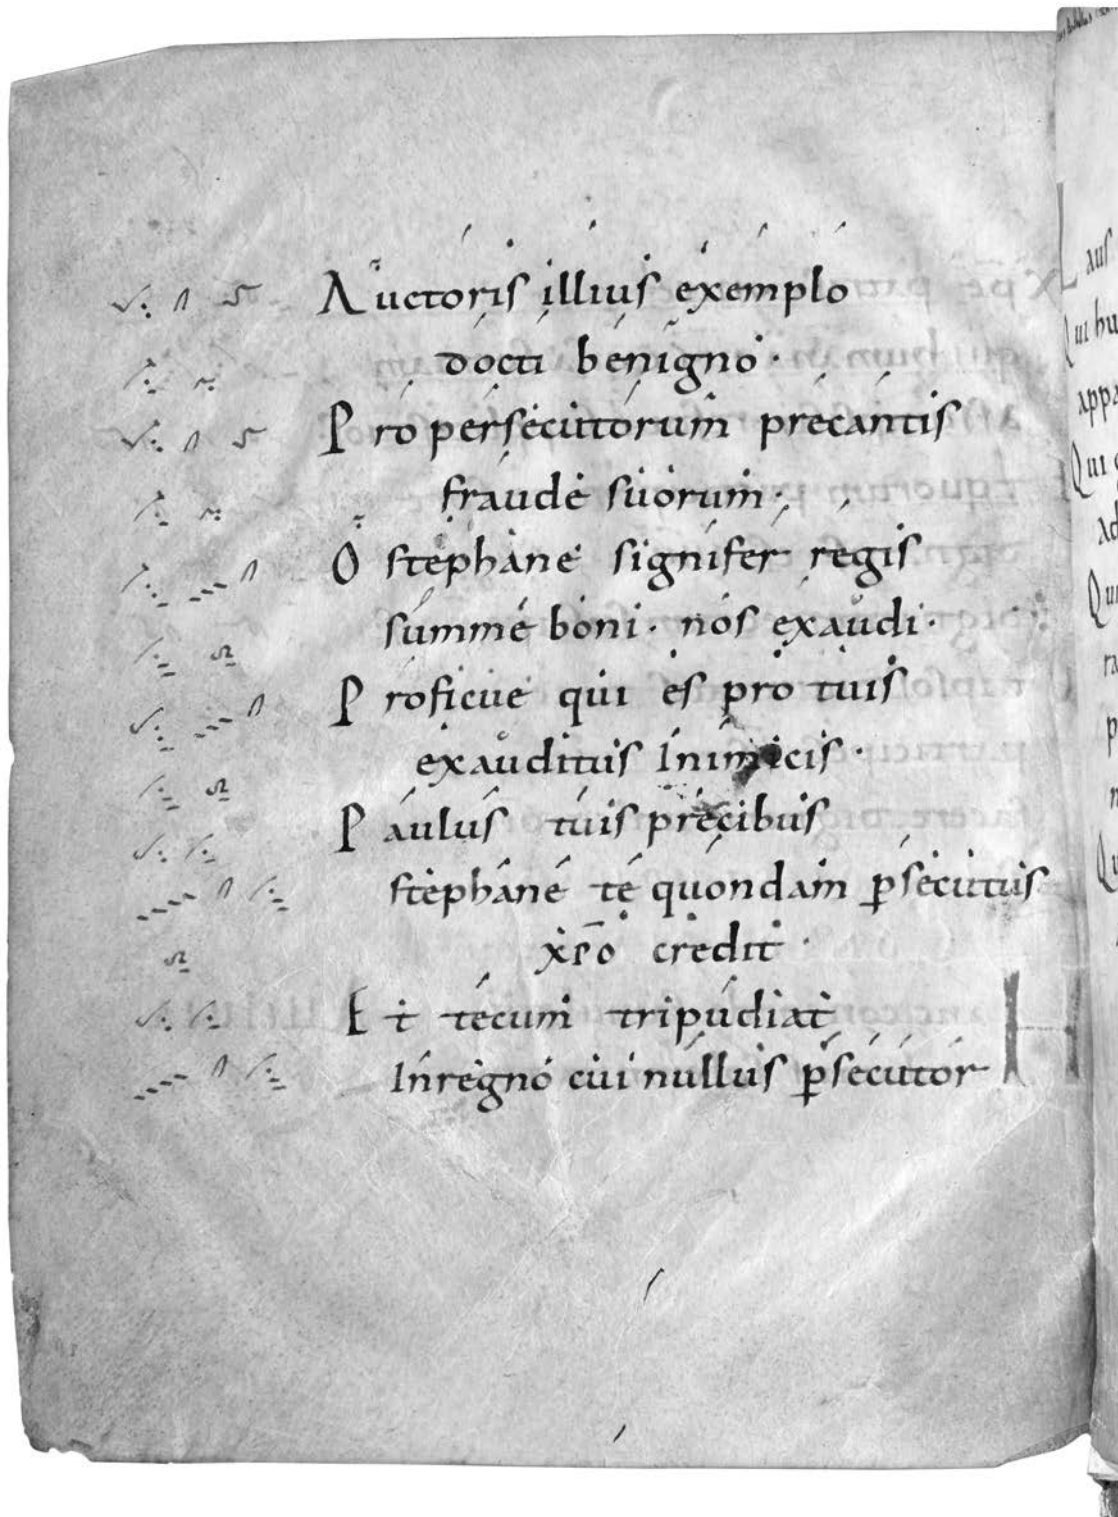 Auctoris illius exemplo
docti benigno·
Pro persecutorum precantis
fraude suorum·
O stephane signifer regis
summe boni· nos exaudi·
Proficue qui es pro tuis
exauditus Inimicis·
Paulus tuis precibus
stephane te quondam p̱secutus
xp̄o credit·
Et tecum tripudiat
Inregno cui nullus p̱secutor
L
aus
Qui hu
appa
Qui g
Ad